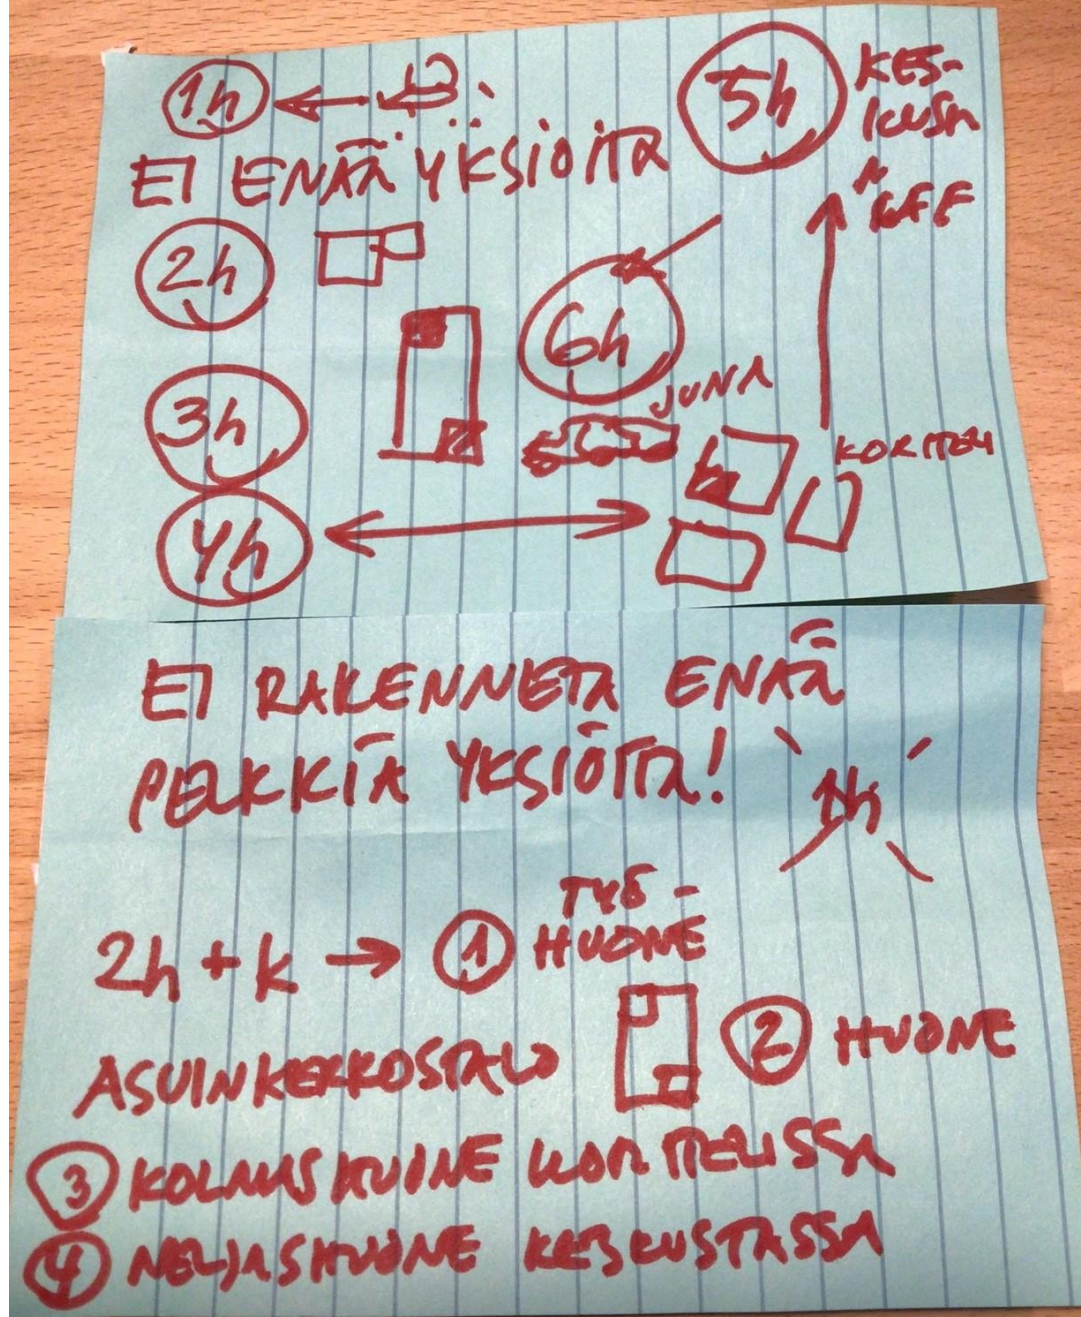 1h
5h
KES-
KUSTA
EI ENÄÄ YKSIÖITÄ
2h
6h
3h
JUNA
KORTTELI
4h
EI RAKENNETA ENÄÄ
PELKKIÄ YKSIÖITÄ!
1h
2h + k → 1 TYÖ-
HUONE
ASUINKERROSTALO
2 HUONE
3 KOLMAS HUONE KORTTELISSA
4 NELJÄS HUONE KESKUSTASSA